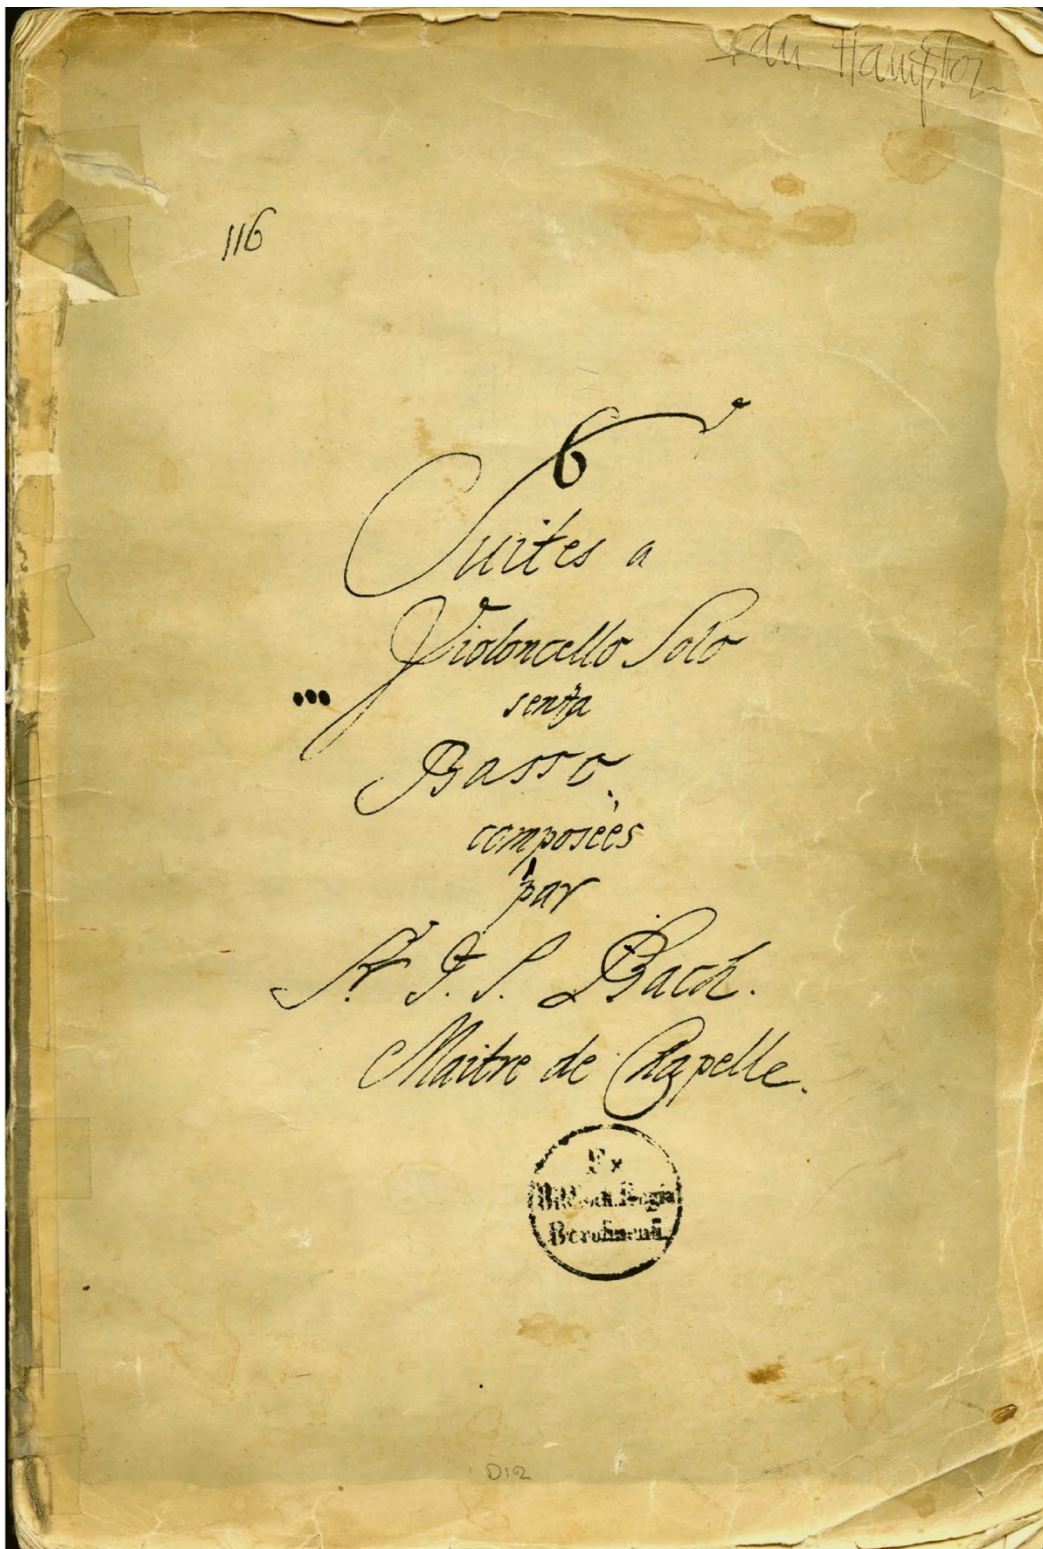 Hampton
116
6
Suites a
Violoncello Solo
senza
Basso.
composées
par
Sr. J. S. Bach.
Maitre de Chapelle.
Ex
Biblioth. Regia
Berolinenſi.
D12